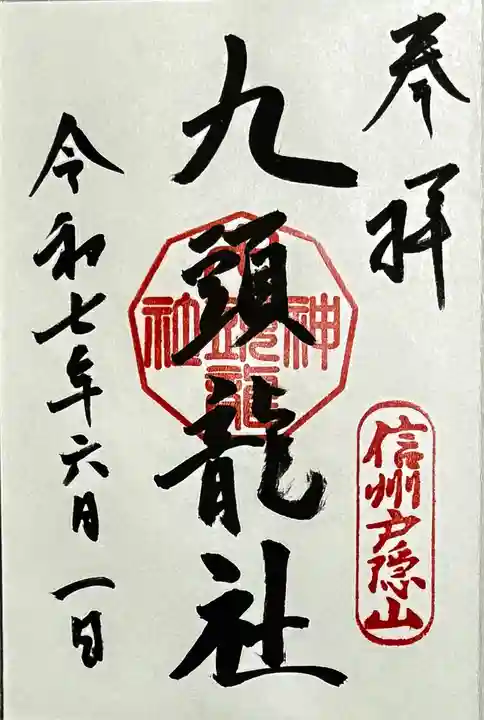 奉拝
信州戸隠山
九頭龍社
令和七年六月一日